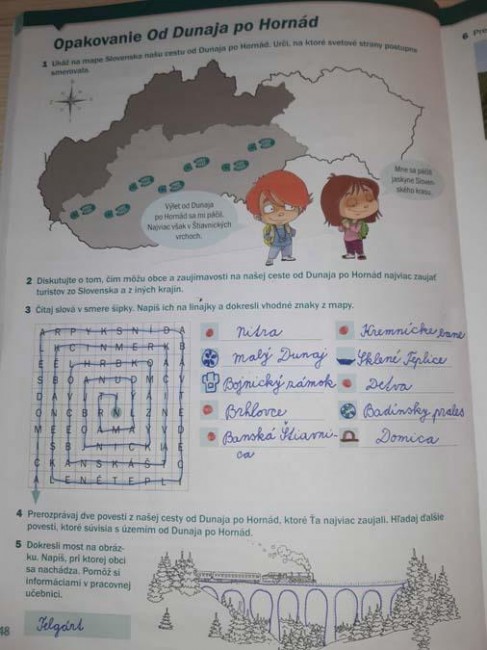 Opakovanie Od Dunaja po Hornád
1 Ukáž na mape Slovenska našu cestu od Dunaja po Hornád. Urči, na ktoré svetové strany postupne
smerovala.
Mne sa páčili
jaskyne Sloven-
ského krasu.
Výlet od Dunaja
po Hornád sa mi páčil.
Najviac však v Štiavnických
vrchoch.
2 Diskutujte o tom, čím môžu obce a zaujímavosti na našej ceste od Dunaja po Hornád najviac zaujať
turistov zo Slovenska a z iných krajín.
3 Čítaj slová v smere šípky. Napíš ich na linajky a dokresli vhodné znaky z mapy.
A R P Y K S N I D A
Nitra
malý Dunaj
Bojnický zámok
Brhlovce
Banská Štiavni-
ca
Kremnické bane
Sklené Teplice
Detva
Badínsky prales
Domica
A L E N É T E P L I
4 Prerozprávaj dve povesti z našej cesty od Dunaja po Hornád, ktoré Ťa najviac zaujali. Hľadaj ďalšie
povesti, ktoré súvisia s územím od Dunaja po Hornád.
5 Dokresli most na obráz-
ku. Napíš, pri ktorej obci
sa nachádza. Pomôž si
informáciami v pracovnej
učebnici.
Telgárt
48
6